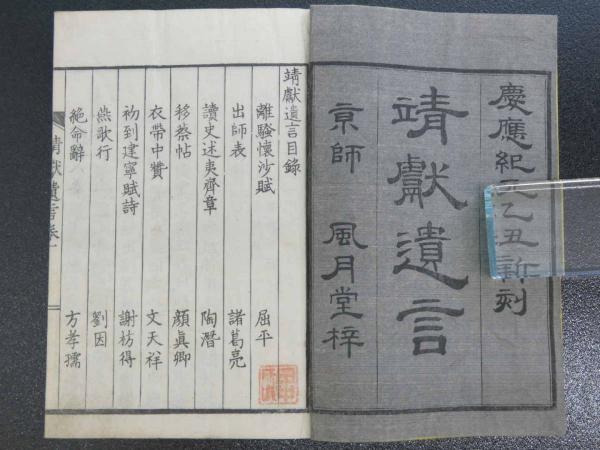 慶應紀元乙丑新刻
靖獻遺言
京師 風月堂梓
靖獻遺言目録
離騷懷沙賦 屈平
出師表 諸葛亮
讀史述夷齊章 陶潛
移蔡帖 顏眞卿
衣帶中贊 文天祥
初到建寧賦詩 謝枋得
燕歌行 劉因
絶命辭 方孝孺
靖獻遺言卷一